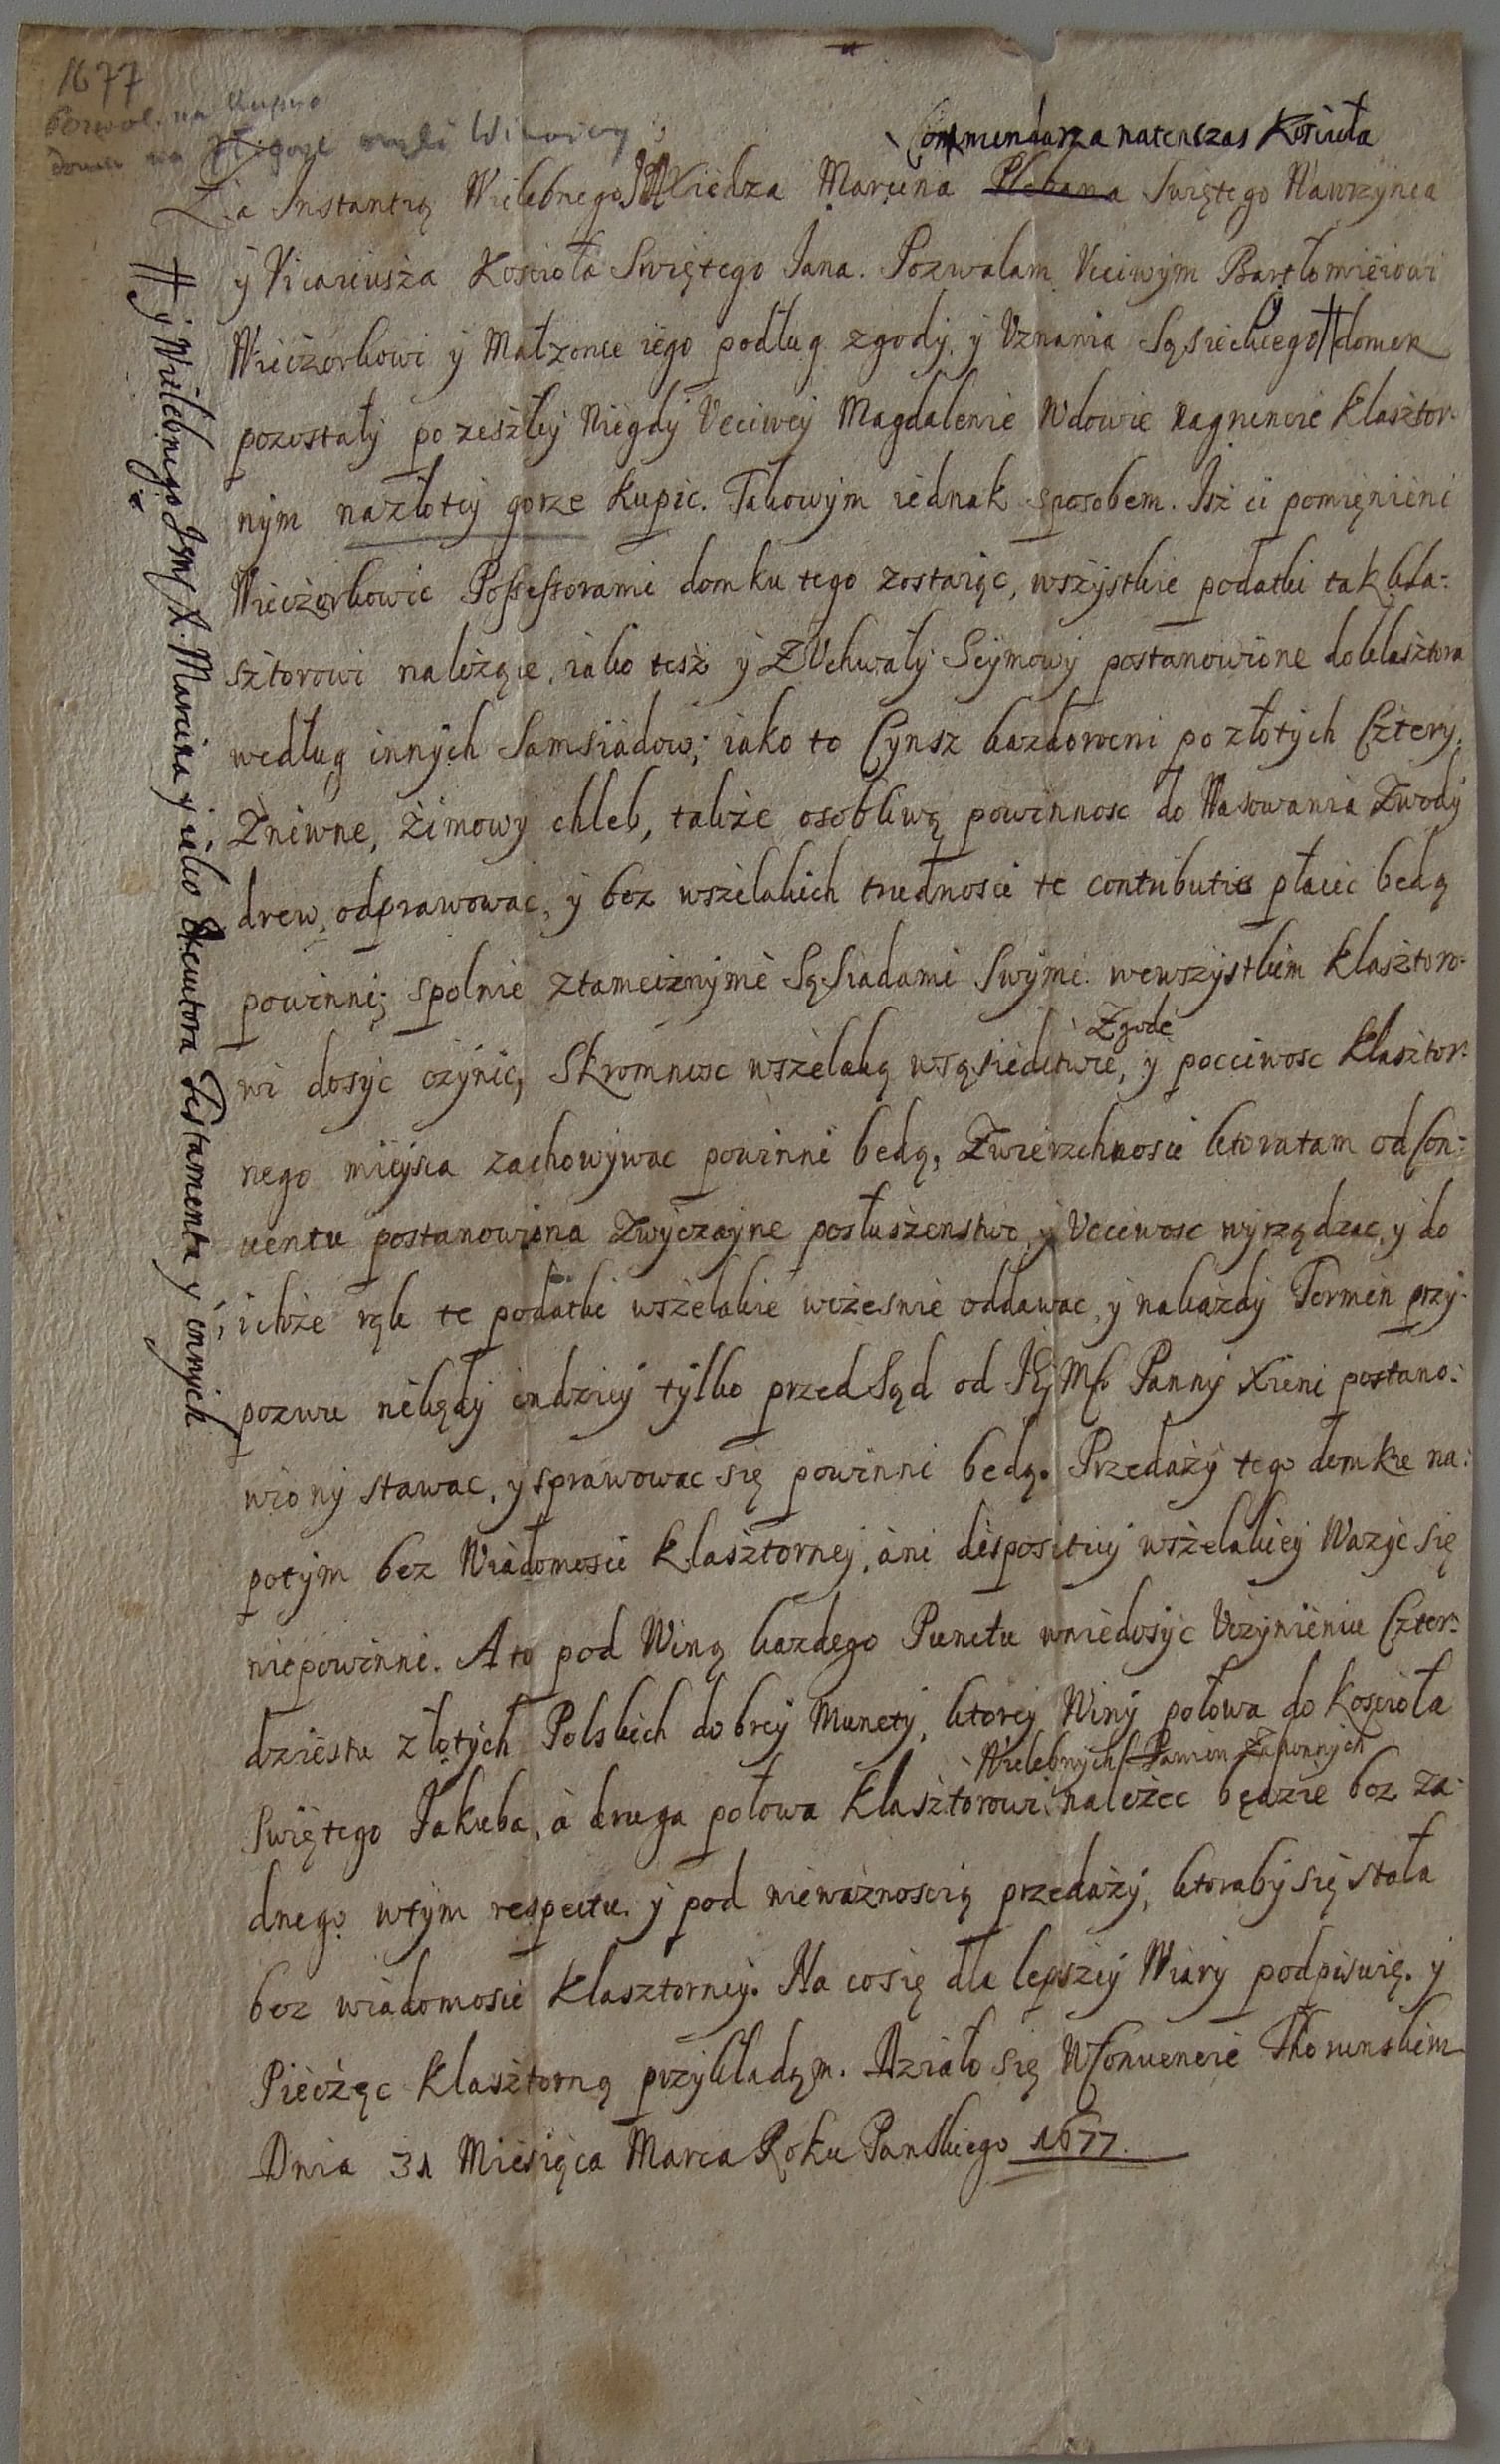 1677
Pozwol. na kupno
domu na złotej górze czyli Winnicy
Commendarza natenczas Kościoła
Za Instantią Wielebnego JMXiedza Marcina Plebana Swiętego Wawrzynca
y Vicariusza Kościoła Swiętego Jana. Pozwalam Vcciwym Bartłomieiowi
Wieczorkowi y Małzonce iego podług zgody y Vznania Sąsieckiego y # domek
pozostały po zeszłey Niegdy Vcciwey Magdalenie Wdowie nagruncie klasztor-
nym nazłotey gorze kupic. Takowym iednak sposobem. Isz ci pomięnieni
Wieczorkowie Possessorami domku tego zostaiąc, wszystkie podatki tak kla-
sztorowi nalezące, iako tesz y ZVchwały Seymowy postanowione do klasztora
według innych Samsiadow; iako to Cynsz kazdoroczni po złotych Cztery,
Zniwne, Zimowy chleb, takze osobliwą powinnosc do Wasowania Zwody
drew, odprawowac, y bez wszelakich trudnosci te contributie płacic będą
powinni; spolnie ztamecznymi Sąsiadami Swymi. wewszystkim klasztoro-
Zgodę
wi dosyc czynic, Skromnosc wszelaką wsąsiedctwie, y poccciwosc klasztor-
nego mieysca zachowywac powinni będą, Zwierzchnosci ktora tam od Con-
uentu postanowiona Zwyczayne posłuszenstwo, y Vcciwosc wyrządzac, y do
ichze rąk te podatki wszelakie wczesnie oddawac, y nakazdy Termin przy-
pozwu niekędy indziey tylko przed Sąd od JEyMsci Panny Xieni postano-
wiony stawac, y sprawowac się powinni będą. Przedazy tego domku na-
potym bez Wiadomosci klasztorney, ani dispositiey wszelakiey Wazyc się
niepowinni. A to pod Winą kazdego Punctu wniedosyc Vczynieniu Czter-
dziestu złotych Polskich dobrey Munety, ktorey Winy połowa do Kościoła
Wielebnych Panien Zakonnych
Swiętego Jakuba, a druga połowa klasztorowi nalezec będzie bez za-
dnego wtym respectu. y pod niewaznoscią przedazy, ktoraby się stała
bez wiadomosci klasztorney. Na co się dla lepszey Wiary podpisuię. y
Pieczęc klasztorną przykładąm. Działo się WConuencie Thorunskim
Dnia 31 Miesięca Marca Roku Panskiego 1677.
# y Wielebnego Jmsc X. Marcina y iako Exeutora Testamenta y innych